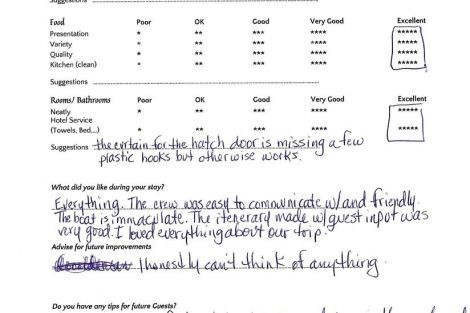 Suggestions
Food Poor OK Good Very Good Excellent
Presentation * ** *** **** *****
Variety * ** *** **** *****
Quality * ** *** **** *****
Kitchen (clean) * ** *** **** *****
Suggestions
Rooms/ Bathrooms Poor OK Good Very Good Excellent
Neatly * ** *** **** *****
Hotel Service
(Towels, Bed...) * ** *** **** *****
Suggestions the curtain for the hatch door is missing a few
plastic hooks but otherwise works.
What did you like during your stay?
Everything. The crew was easy to communicate w/ and friendly.
The boat is immaculate. The itenerary made w/ guest input was
very good. I loved everything about our trip.
Advise for future improvements
I honestly can't think of anything.
Do you have any tips for future Guests?